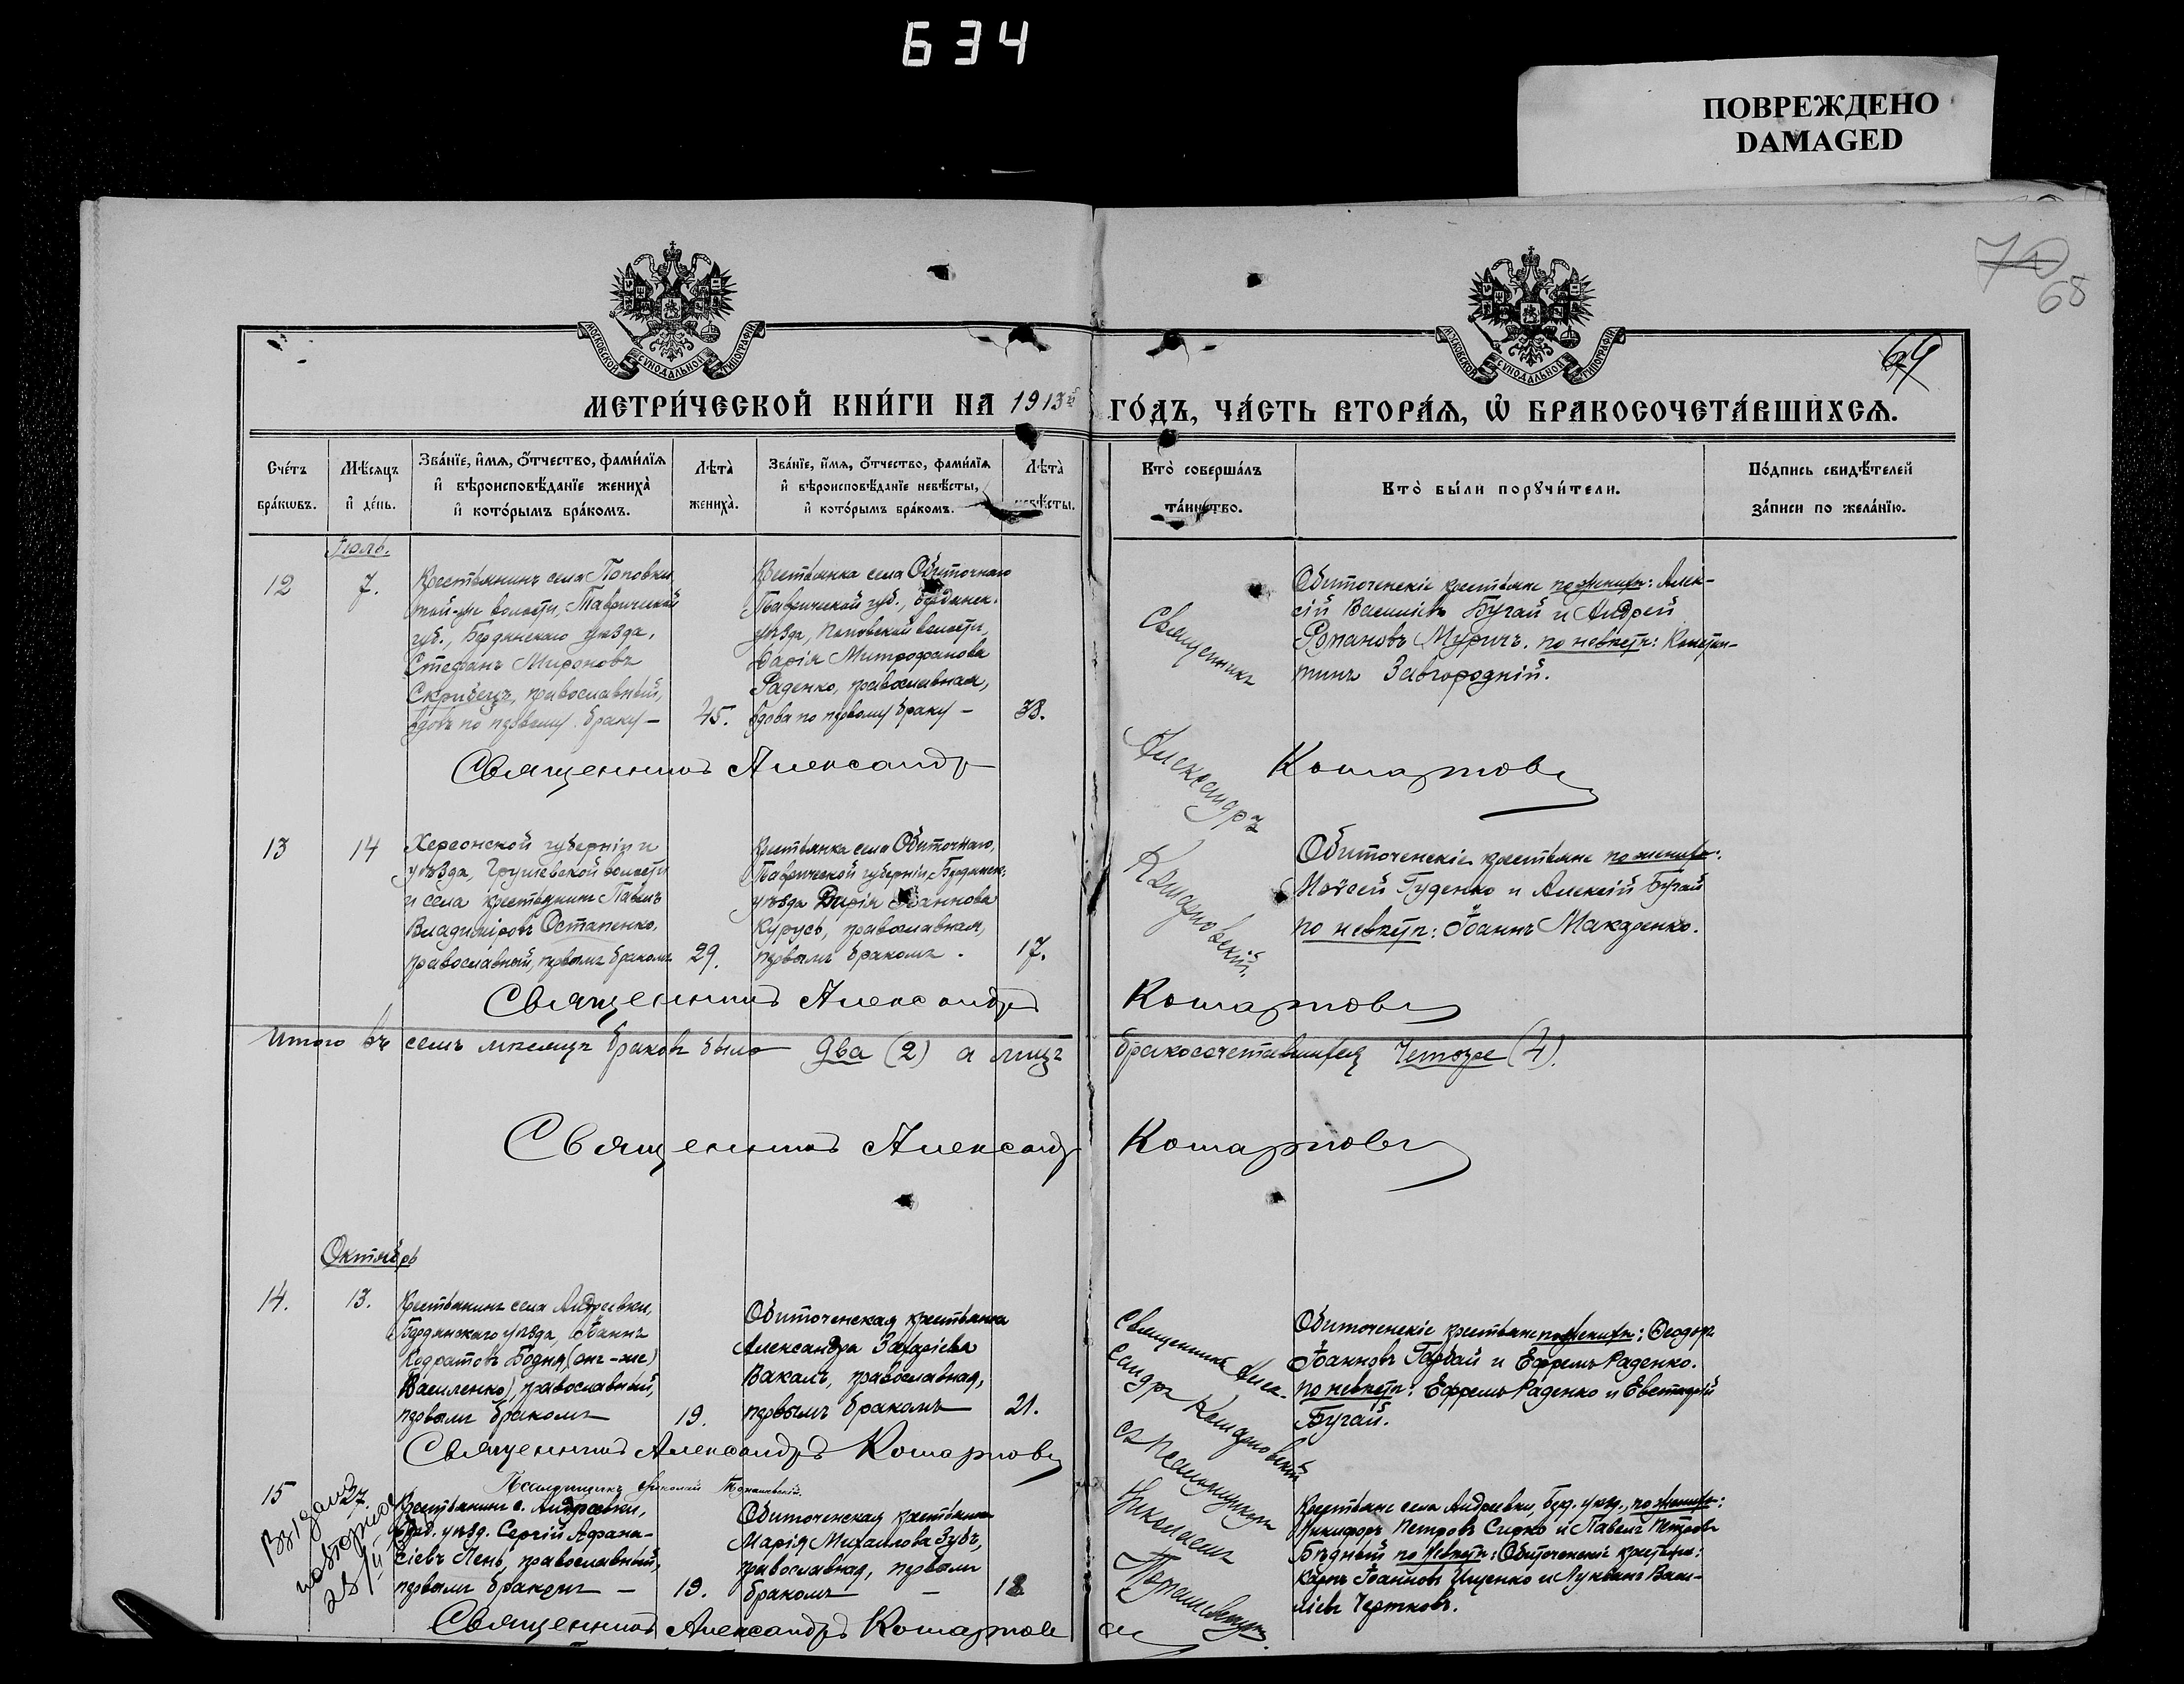 634
ПОВРЕЖДЕНО
DAMAGED
70
68
69
МОСКОВСКОЙ СУНОДАЛЬНОЙ ТИПОГРАФІИ
МОСКОВСКОЙ СУНОДАЛЬНОЙ ТИПОГРАФІИ
МЕТРИ́ЧЕСКОЙ КНИ́ГИ НА 1913й ГО́ДЪ, ЧА́СТЬ ВТОРА́Я, Ѡ БРАКОСОЧЕТА́ВШИХСЯ.
Сче́тъ бра́кѡвъ.
Мѣ́сяцъ и де́нь.
Зва́нїе, и́мя, ѻ́тчество, фами́лїя и вѣроисповѣ́данїе жениха̀ и кото́рымъ бра́комъ.
Лѣта̀ жениха̀.
Зва́нїе, и́мя, ѻ́тчество, фами́лїя и вѣроисповѣ́данїе невѣ́сты, и кото́рымъ бра́комъ.
Лѣта̀ невѣ́сты.
Кто̀ соверша́лъ та́инство.
Кто̀ бы́ли порꙋчи́тели.
По́дпись свидѣ́телей за́писи по жела́нїю.
Іюль.
12
7.
Крестьянинъ села Поповки
той-же волости, Таврической
губ., Бердянскаго уѣзда,
Стефанъ Мироновъ
Скрибецъ, православный,
вдовъ по первому браку —
45.
Крестьянка села Обиточнаго
Таврической губ., Бердянск.
уѣзда, Поповской волости,
Дарія Митрофанова
Раденко, православная,
вдова по первому браку —
33.
Священникъ
Александръ
Кошарновскій.
Обиточенскіе крестьяне по женихѣ: Алек-
сій Василіевъ Бугай и Андрей
Романовъ Муричъ. по невѣстѣ: Констан-
тинъ Завгородній.
Священникъ Александр Кошарновск
13
14
Херсонской губерніи и
уѣзда, Грушевской волости
и села крестьянинъ Павелъ
Владиміровъ Остапенко,
православный, первымъ бракомъ
29.
Крестьянка села Обиточнаго,
Таврической губерніи, Бердянск.
уѣзда Дарія Іоаннова
Курусь, православная,
первымъ бракомъ.
17.
Обиточенскіе крестьяне по женихѣ:
Моѵсей Гуденко и Алексій Бугай
по невѣстѣ: Іоаннъ Макаренко.
Священникъ Александръ Кошарновск
Итого въ семъ мѣсяцѣ браковъ было два (2) а лицъ бракосочетавшихся четыре (4).
Священникъ Александр Кошарновск
Октябрь
14.
13.
Крестьянинъ села Андреевки,
Бердянскаго уѣзда, Іоаннъ
Кодратовъ Бодня, (онъ-же)
Василенко), православный,
первымъ бракомъ
19.
Обиточенская крестьянка
Александра Захаріева
Вакалъ, православная,
первымъ бракомъ
21.
Священникъ Алек-
сандръ Кошарновскій
съ псаломщикомъ
Николаемъ
Обиточенскіе крестьяне по женихѣ: Ѳеодоръ
Іоанновъ Гарбай и Ефремъ Раденко.
по невѣстѣ: Ефремъ Раденко и Евстафій
Бугай.
Священникъ Александръ Кошарновск
Псаломщикъ Николай
15
27.
Крестьянинъ с. Андреевки,
Берд. уѣзд. Сергій Афана-
сіевъ Лень, православный,
первымъ бракомъ —
19.
Обиточенская крестьянка
Марія Михаилова Зубъ,
православная, первымъ
бракомъ —
18
Крестьяне села Андреевки, Берд. уѣзд., по женихѣ:
Никифоръ Петровъ Сирко и Павелъ Петровъ
Бѣдный по невѣстѣ: Обиточенскіе крестьяне:
Карпъ Іоанновъ Ищенко и Лукіанъ Васи-
ліевъ Чертковъ.
Священникъ Александръ Кошарновск